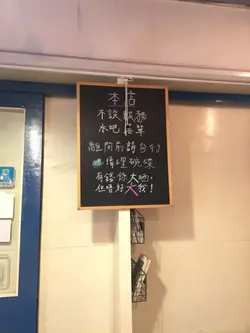 本店
不設服務
水吧簽單
離開前請自行
清理碗碟
有錢你大哂,
但唔好大我!